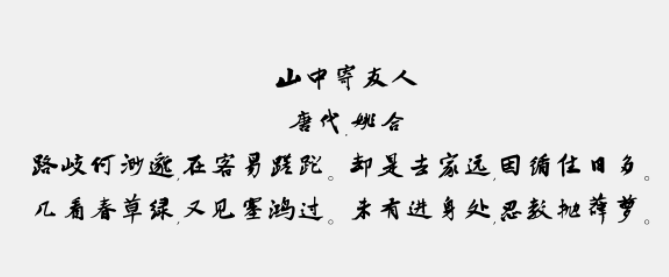 山中寄友人
唐代,姚合
路岐何渺邈,在客易蹉跎。却是去家远,因循住日多。
几看春草绿,又见塞鸿过。未有进身处,忍教抛薜萝。